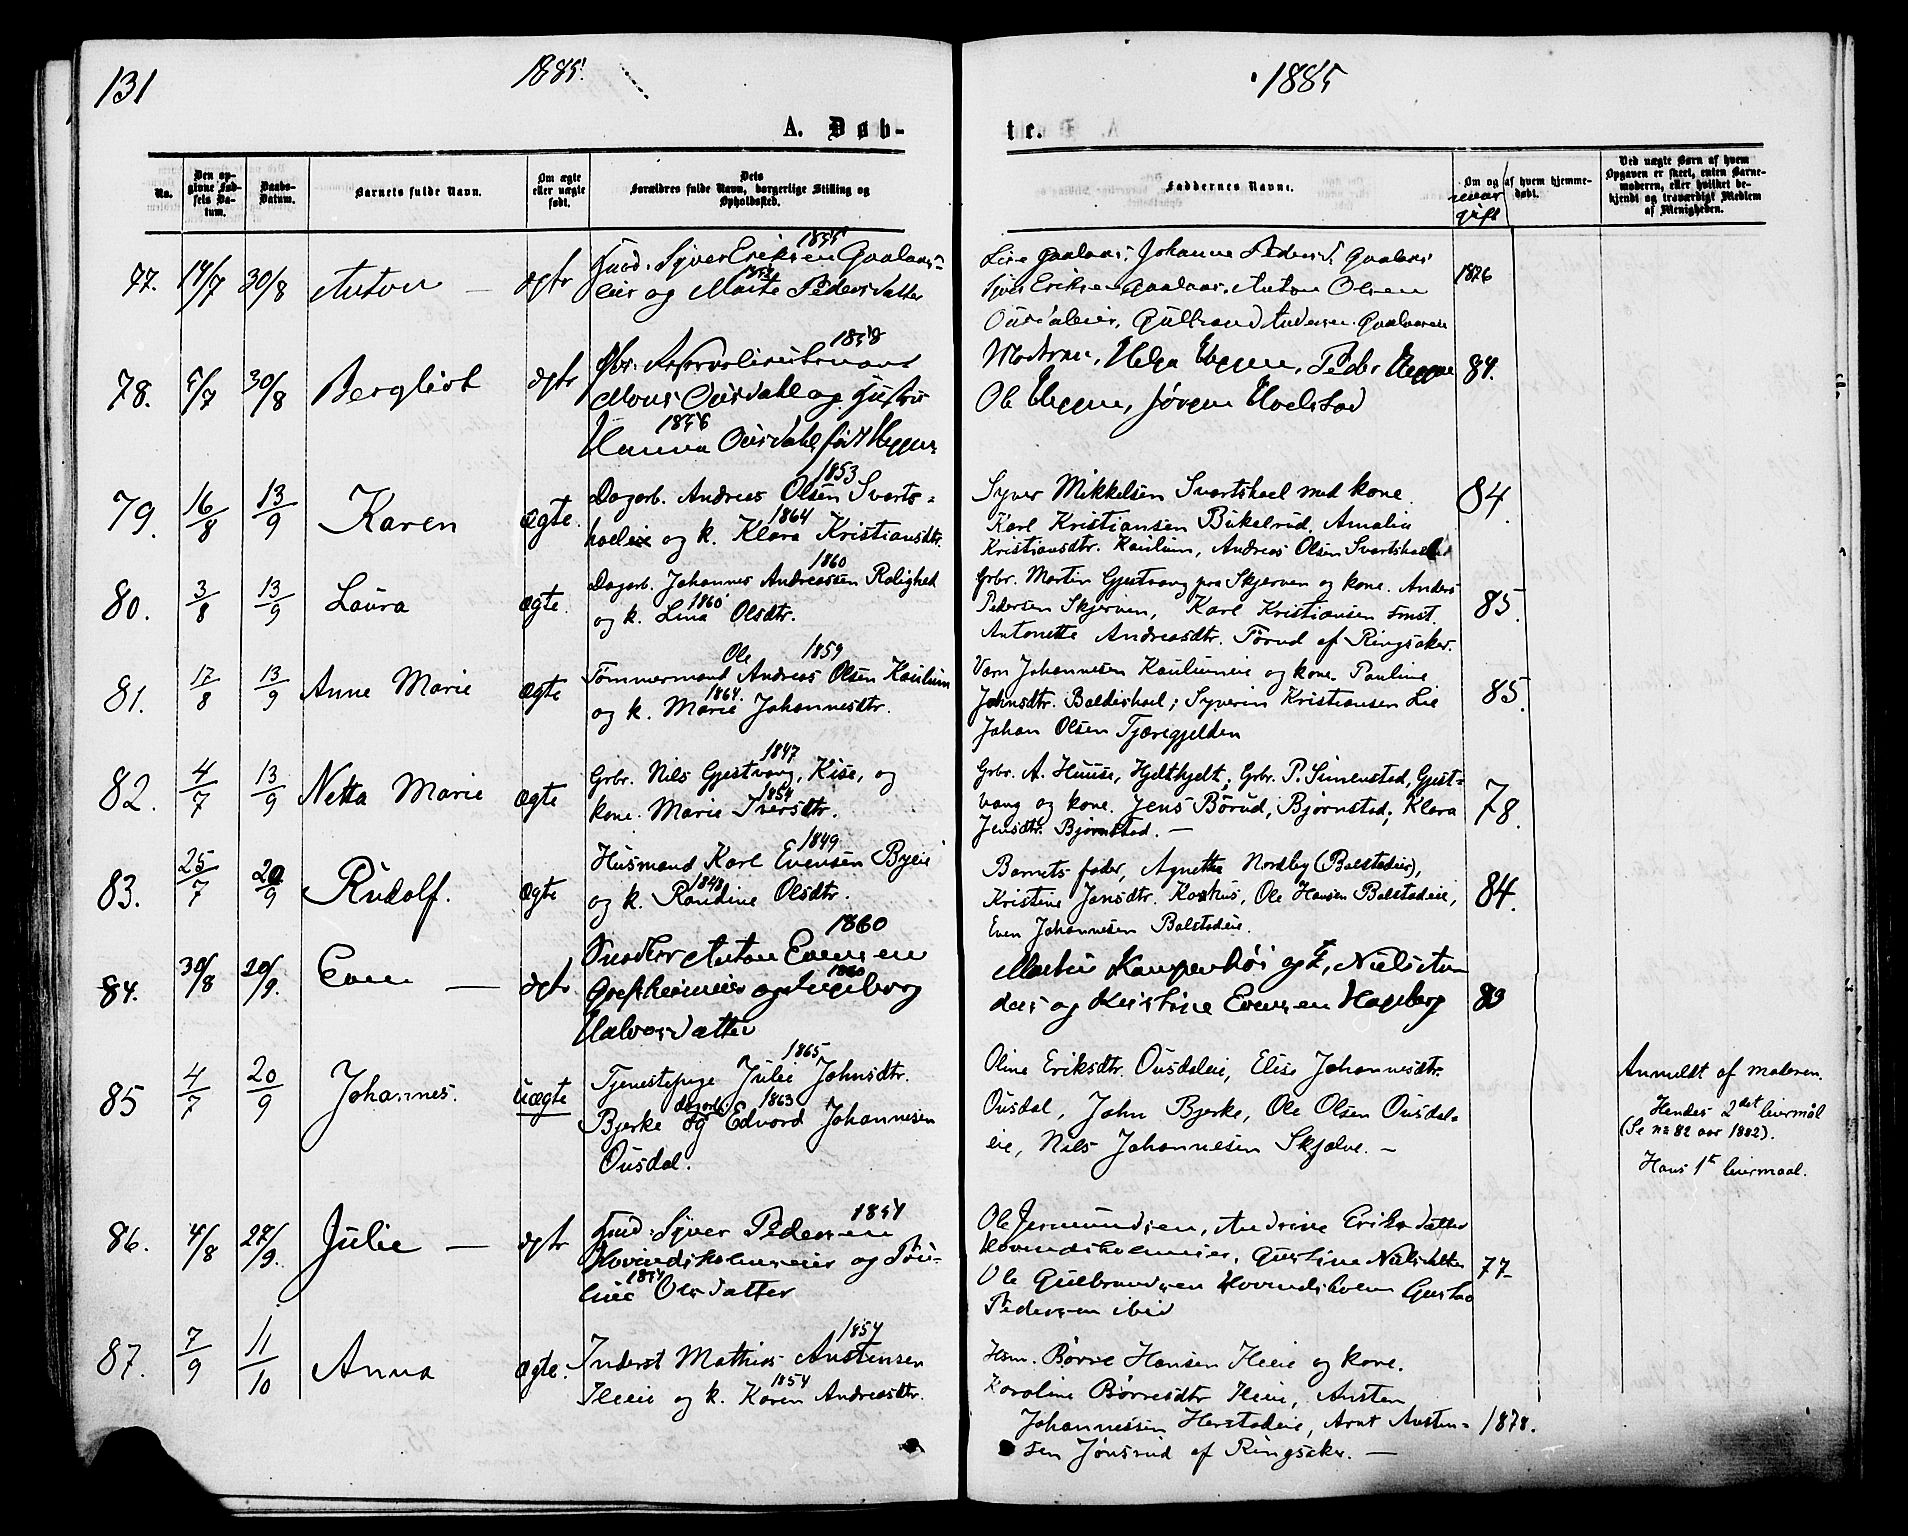 131
1885.
1885
A. Døb-
te.
No.
Den opgivne Fødsels Datum.
Daabs-Datum.
Barnets fulde Navn.
Om ægte eller uægte født.
Dets Forældres fulde Navn, borgerlige Stilling og Opholdssted.
Faddernes Navne.
Om og af hvem hjemmedøbt.
naar gift
Ved uægte Børn af hvem Opgaven er skeet, enten Barnemoderen, eller hvilket bekjendt og troværdigt Medlem af Menigheden.
77. 14/7 30/8 Anton — ægte
Syver Eriksen Gaalaas-
eie og Marte Pedersdatter
Lise Gaalaas, Johanne Pedersd. Gaalaas
Syver Eriksen Gaalaas, Anton Olsen
Ousdaleie, Gulbrand Andersen Gaalaaseie
1876
78. 5/7 30/8 Bergliot ægte
1858
Mons Ousdahl og Hustru
1856
Hanna Ousdahl født Heggen
Moderen, Helga Heggen, Peder Heggen
Ole Heggen, Jørgen Hoelstad
84.
79. 16/8 13/9 Karen ægte.
1853
Dagarb. Andreas Olsen Svarts-
1864
hoeleie og k. Klara Kristiansdtr.
Syver Mikkelsen Svartshoel med kone.
Karl Kristiansen Bikelrud, Amalia
Kristiansdtr. Kaulum, Andreas Olsen Svartshoel
84.
80. 3/8 13/9 Laura ægte.
1860
Dagarb. Johannes Andreassen Rolighed
1860
og k. Lina Olsdtr.
Grbr. Martin Gjestvang paa Skjerven og kone. Anders
Pedersen Skjerven, Karl Kristiansen smst.
Antonette Andreasdtr. Torud af Ringsaker.
85.
81. 17/8 13/9 Anne Marie ægte
Ole 1859
Tømmermand Andreas Olsen Kaulum
1864.
og k. Marie Johannesdtr.
Johannesen Kaulumeie og kone. Pauline
Johnsdtr. Baldishoel; Syverin Kristiansen Lie
Johan Olsen Tjæregjelden
85.
82. 4/7 13/9 Netta Marie ægte
1847
Grbr. Nils Gjestvang, Kise, og
1854
kone. Marie Iversdtr.
Grbr. A. Huuse, Hjelthjelt; Grbr. P. Simenstad, Gjest-
vang og kone. Jens Børud, Bjørnstad; Klara
Jensdtr. Bjørnstad. —
78.
83. 25/7 20/9 Rudolf. ægte
1849
Husmand Karl Evensen Byeie
1848
og k. Randine Olsdtr.
Barnets fader, Agnethe Nordby (Balstadeie),
Kristine Jonsdtr. Korshus, Ole Hansen Balstadeie,
Even Johannesen Balstadeie.
84.
84. 30/8 20/9. Even — ægte
1860
Snedker Anton Evensen
1860
Grefsheimeie og Ingeborg
Halvorsdatter
Martin Kampenhøi og k., Niels
og Kristine Evensen Hageberg
83
85 4/7 20/9 Johannes. uægte
1865
Tjenestepige Julie Johnsdtr.
dagarb. 1863
Bjerke og Edvard Johannesen
Ousdal.
Oline Eriksdtr. Ousdaleie, Elise Johannesdtr.
Ousdal, John Bjerke, Ole Olsen Ousdal-
eie, Nils Johannesen Skjelve. —
Anmeldt af moderen.
Hendes 2det leiermål
(Se no 82 aar 1882).
Hans 1te leiermaal.
86. 4/8 27/9. Julie — ægte
Syver Pedersen
Hovindsholmeie og
Olsdatter
Ole Jermundsen, Andrine Eriksdatter
Hovindsholmeie, Gustine Nielsdatter
Ole Gulbrandsen Hovindsholm Gustav
Pedersen ibid
77-
87. 7/9 11/10 Anna ægte.
1854
Inderst Mathias Austensen
1854
Ileie og k. Karen Andreasdtr.
Hsm. Børre Hansen Ileie og kone.
Karoline Børresdtr Ileie, Austen
Johannessen Herstadeie, Arnt Austen-
sen Jønsrud af Ringsaker. —
1878.